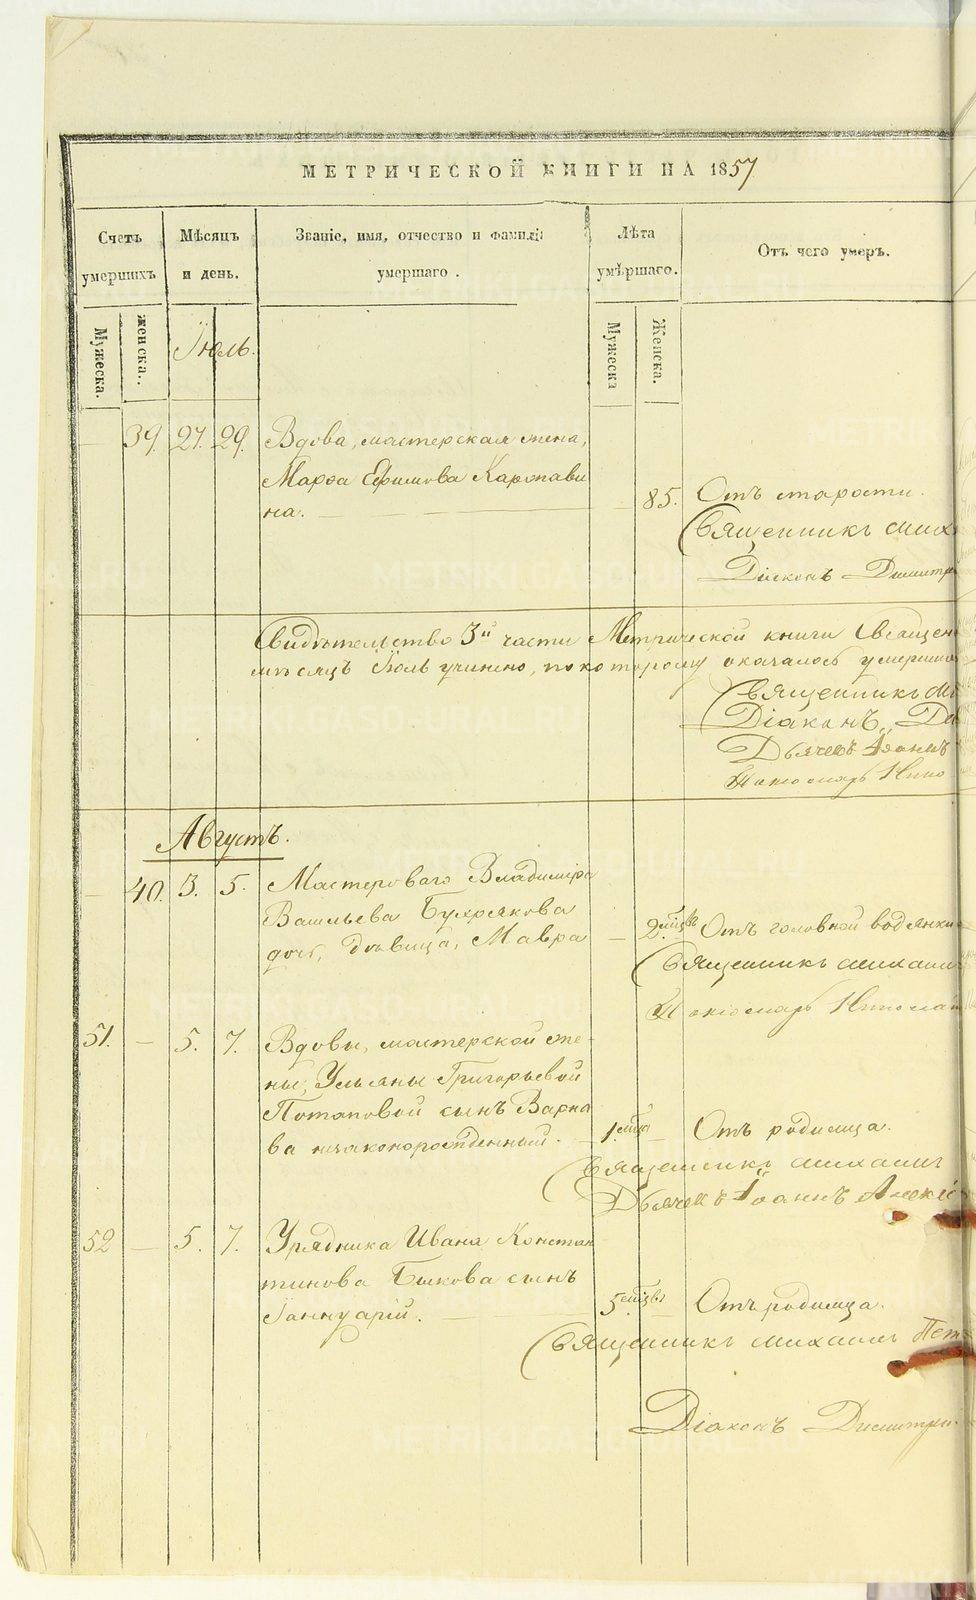 МЕТРИЧЕСКОЙ КНИГИ НА 1857
Счетъ умершихъ
Мѣсяцъ и день.
Званіе, имя, отчество и фамилія умершаго.
Лѣта умѣршаго.
Отъ чего умеръ.
Мужеска. Женска. Мужеска Женска.
Іюль.
— 39. 27. 29. Вдова, мастерская жена,
Марѳа Ефимова
на. — 85. Отъ старости.
Священникъ Мих
Діаконъ Димитр
Свидѣтельство 3й части Метрической книги Священ
мѣсяцъ Іюль учинено, по которому оказалось умерши
Священникъ Ми
Діаконъ, Д
Дьячекъ Іоаннъ
Пономарь Нико
Августъ.
— 40. 3. 5. Мастероваго Владиміра
Васильева Бухрякова
дочь, дѣвица, Мавра — 2 мѣсцъ Отъ головной водянки
Священникъ Михаилъ
Пономарь Никола
51. — 5. 7. Вдовы, мастерской же-
ны, Ульяны Григорьевой
Потаповой сынъ Варна
ва незаконорожденный. — 1 мца — Отъ родимца.
Священникъ Михаилъ
Дьячекъ Іоаннъ Алексі
52 — 5. 7. Урядника Ивана Констан
тинова Быкова сынъ
Іаннуарій. — 5 мцвъ Отъ родимца.
Священникъ Михаилъ Пет
Діаконъ Димитрі
METRIKI.GASO-URAL.RU